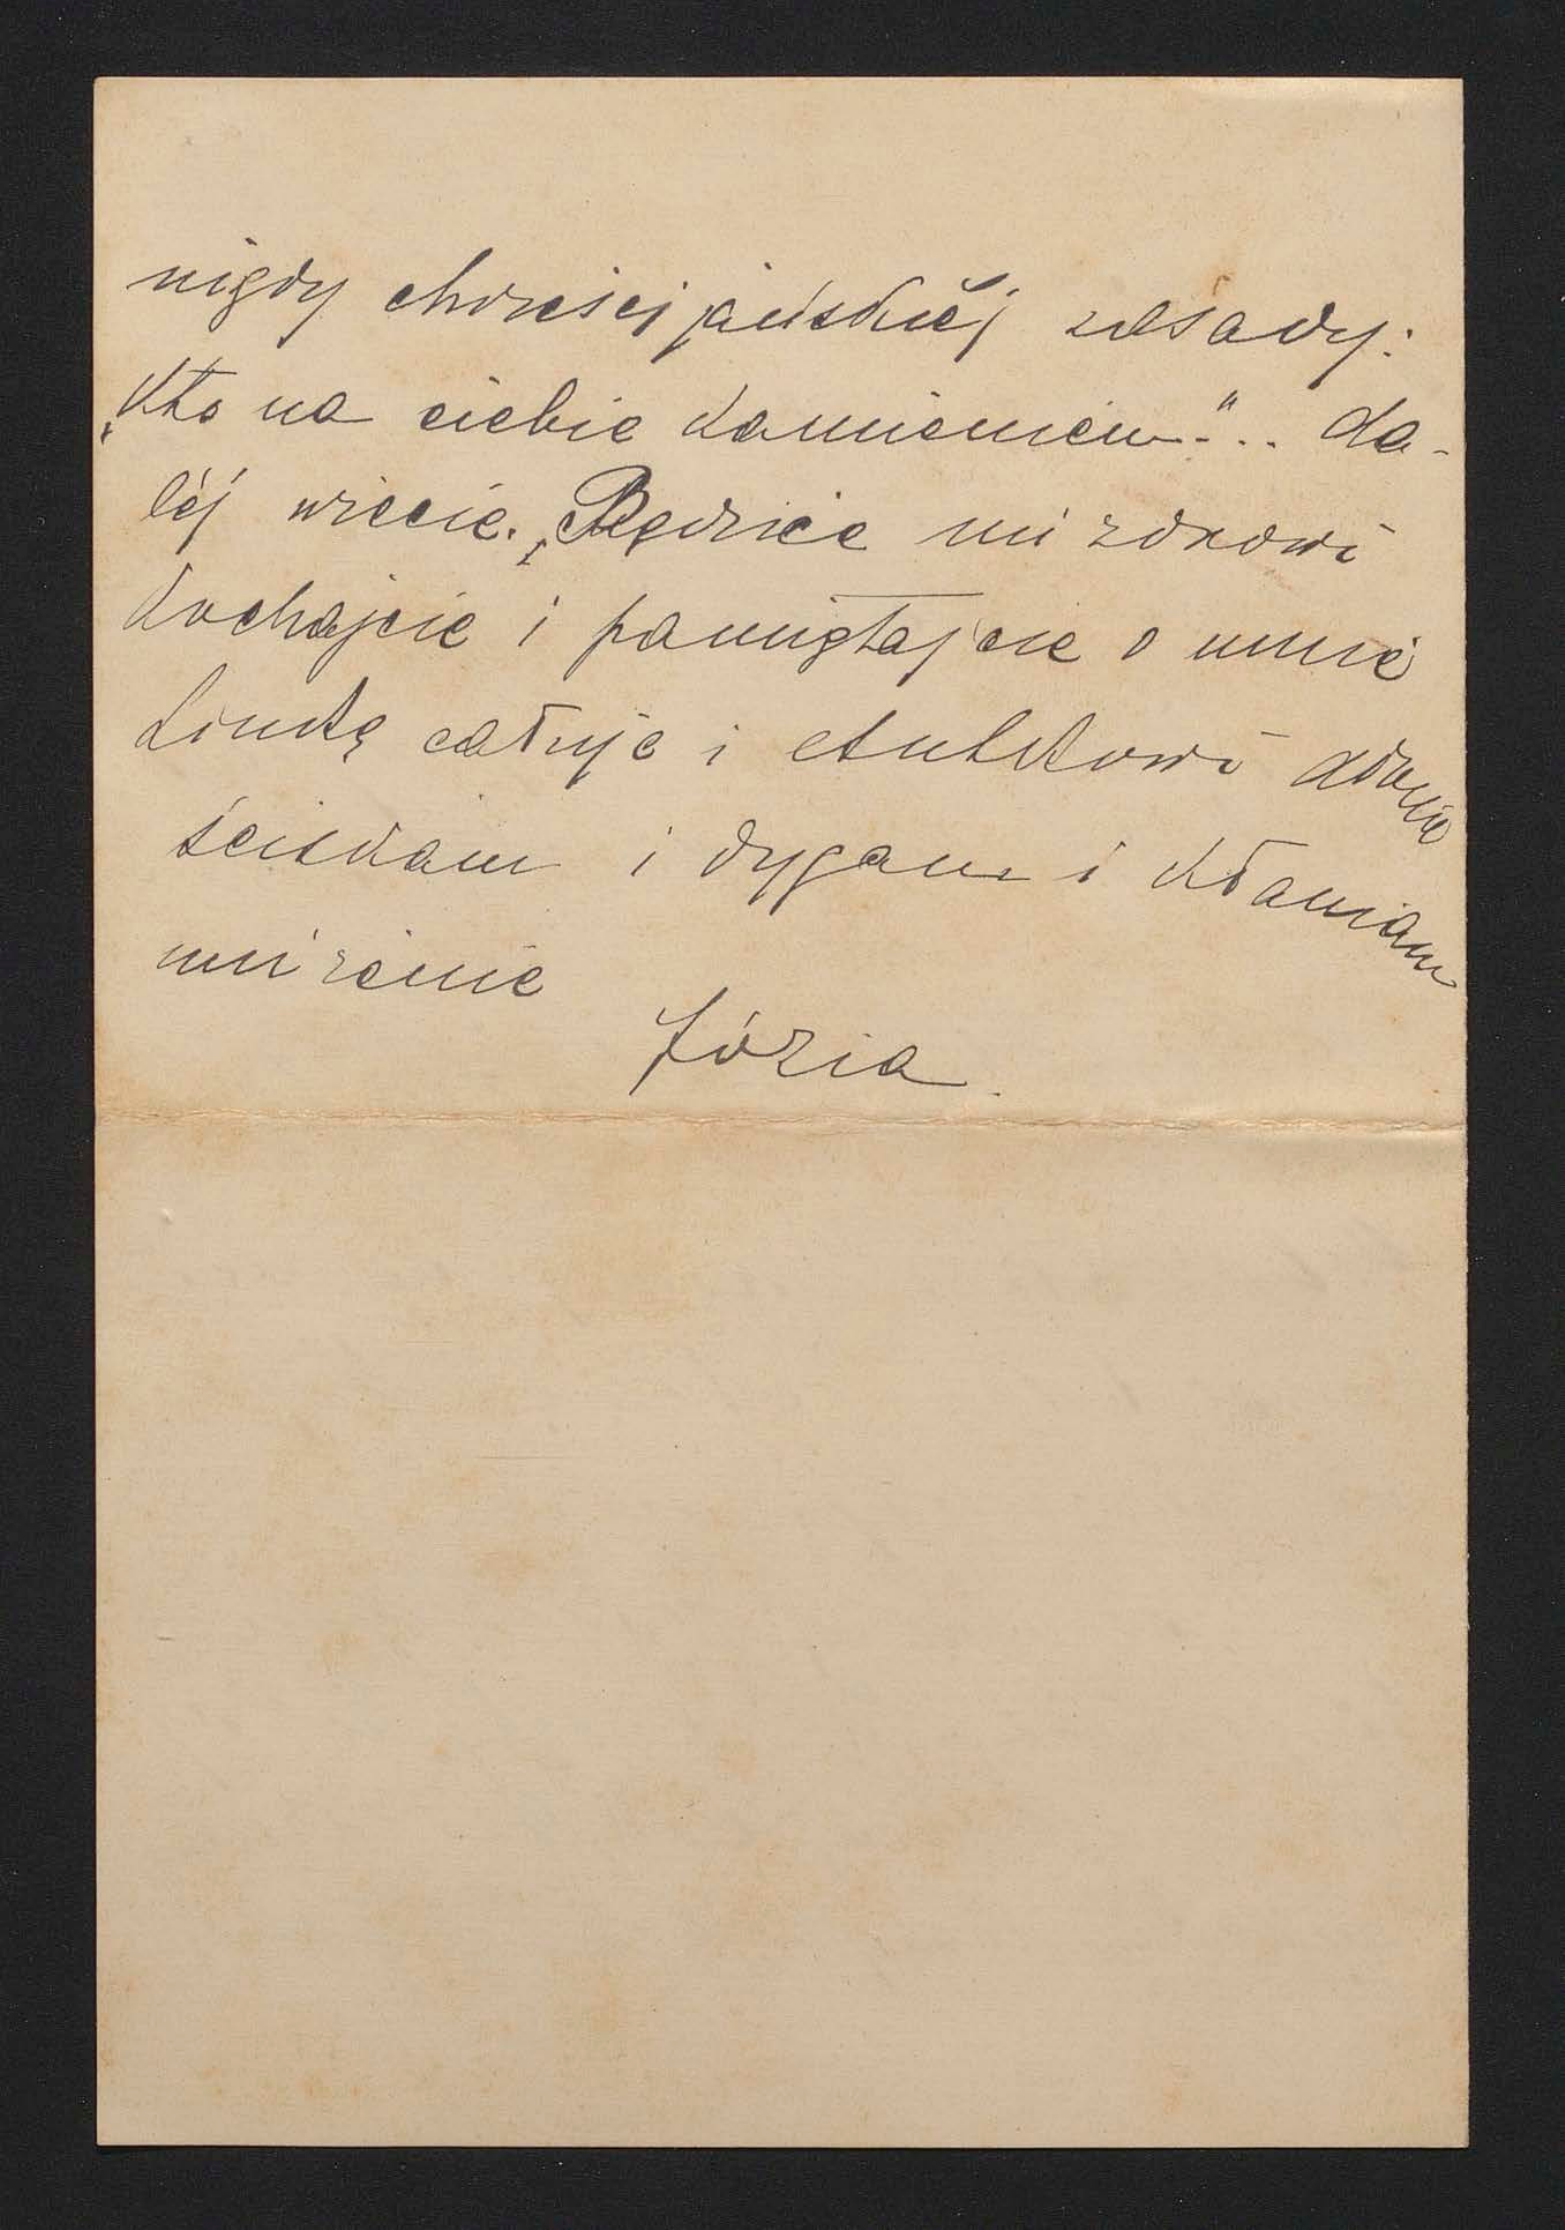 nigdy chrześcijańskiéj zasady:
„Kto na ciebie kamieniem"... da-
léj wiecie. Bądźcie mi zdrowi
kochajcie i pamiętajcie o mnie
całuję i dłonie
ściskam i dygam i kłaniam
uniżenie
Józia.